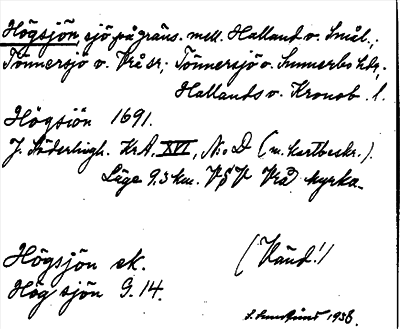 Högsjön, sjö på gräns. mell. Halland o. Smål.,
Tönnersjö o. Vrå sr; Tönnersjö o. Sunnerbo hdr,
Hallands o. Kronob. l.
Högsiön 1691.
J. Söderlingh. KrA. XVI, N:o D (m. kartbeskr.).
Läge 9.3 km. VSV Vrå kyrka.
Högsjön ek.
Högsjön G. 14.
(Vänd!)
1938.